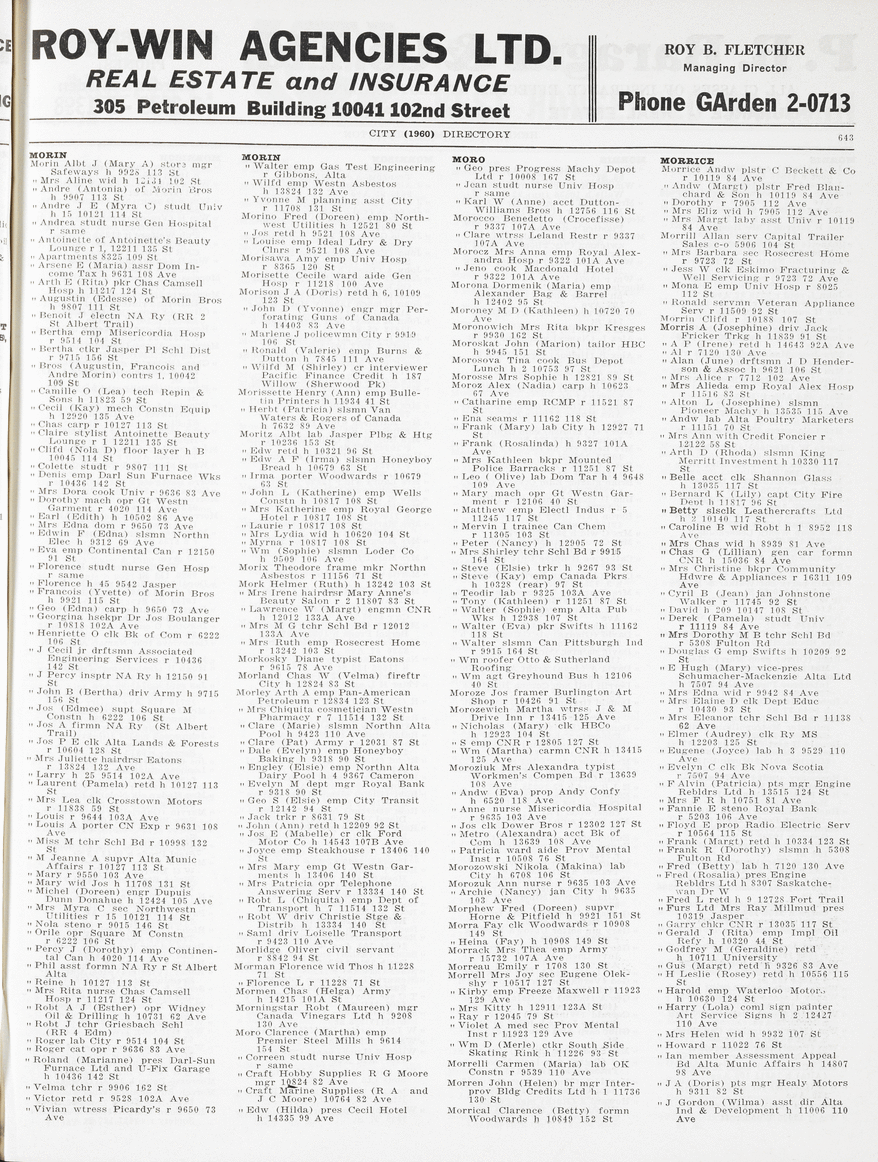 ROY-WIN AGENCIES LTD.
REAL ESTATE and INSURANCE
305 Petroleum Building 10041 102nd Street
ROY B. FLETCHER
Managing Director
Phone GArden 2-0713
CITY (1960) DIRECTORY
643
MORIN
Morin Albt J (Mary A) store mgr
Safeways h 9928 113 St
" Mrs Aline wid h 12131 102 St
" Andre (Antonia) of Morin Bros
h 9907 113 St
" Andre J E (Myra C) studt Univ
h 15 10121 114 St
" Andrea studt nurse Gen Hospital
r same
" Antoinette of Antoinette's Beauty
Lounge r 1, 12211 135 St
" Apartments 8325 109 St
" Arsene E (Maria) assr Dom In-
come Tax h 9631 108 Ave
" Arth E (Rita) pkr Chas Camsell
Hosp h 11217 124 St
" Augustin (Edesse) of Morin Bros
h 9807 111 St
" Benoit J electn NA Ry (RR 2
St Albert Trail)
" Bertha emp Misericordia Hosp
r 9514 104 St
" Bertha ctkr Jasper Pl Schl Dist
r 9715 156 St
" Bros (Augustin, Francois and
Andre Morin) contrs 1, 10042
109 St
" Camille O (Lea) tech Repin &
Sons h 11823 59 St
" Cecil (Kay) mech Constn Equip
h 12920 135 Ave
" Chas carp r 10127 113 St
" Claire stylist Antoinette Beauty
Lounge r 1 12211 135 St
" Clifd (Nola D) floor layer h B
10045 114 St
" Colette studt r 9807 111 St
" Denis emp Darl Sun Furnace Wks
r 10436 142 St
" Mrs Dora cook Univ r 9636 83 Ave
" Dorothy mach opr Gt Westn
Garment r 4020 114 Ave
" Earl (Edith) h 10502 86 Ave
" Mrs Edna dom r 9650 73 Ave
" Edwin F (Edna) slsmn Northn
Elec h 9312 69 Ave
" Eva emp Continental Can r 12150
91 St
" Florence studt nurse Gen Hosp
r same
" Florence h 45 9542 Jasper
" Francois (Yvette) of Morin Bros
h 9921 115 St
" Geo (Edna) carp h 9650 73 Ave
" Georgina hsekpr Dr Jos Boulanger
r 10818 102A Ave
" Henriette O clk Bk of Com r 6222
106 St
" J Cecil jr drftsmn Associated
Engineering Services r 10436
142 St
" J Percy insptr NA Ry h 12150 91
St
" John B (Bertha) driv Army h 9715
156 St
" Jos (Edmee) supt Square M
Constn h 6222 106 St
" Jos A firmn NA Ry (St Albert
Trail)
" Jos P E clk Alta Lands & Forests
r 10604 128 St
" Mrs Juliette hairdrsr Eatons
r 13824 132 Ave
" Larry h 25 9514 102A Ave
" Laurent (Pamela) retd h 10127 113
St
" Mrs Lea clk Crosstown Motors
r 11838 59 St
" Louis r 9644 103A Ave
" Louis A porter CN Exp r 9631 108
Ave
" Miss M tchr Schl Bd r 10998 132
St
" M Jeanne A supvr Alta Munic
Affairs r 10127 113 St
" Mary r 9550 103 Ave
" Mary wid Jos h 11708 131 St
" Michel (Doreen) engr Dupuis
Dunn Donahue h 12424 105 Ave
" Mrs Myra C sec Northwestn
Utilities r 15 10121 114 St
" Nola steno r 9015 146 St
" Orile opr Square M Constn
r 6222 106 St
" Percy J (Dorothy) emp Continen-
tal Can h 4020 114 Ave
" Phil asst formn NA Ry r St Albert
Alta
" Reine h 10127 113 St
" Mrs Rita nurse Chas Camsell
Hosp r 11217 124 St
" Robt A J (Esther) opr Widney
Oil & Drilling h 10731 62 Ave
" Robt J tchr Griesbach Schl
(RR 4 Edm)
" Roger lab City r 9514 104 St
" Roger cat opr r 9636 83 Ave
" Roland (Marianne) pres Darl-Sun
Furnace Ltd and U-Fix Garage
h 10436 142 St
" Velma tchr r 9906 162 St
" Victor retd r 9528 102A Ave
" Vivian wtress Picardy's r 9650 73
Ave
MORIN
" Walter emp Gas Test Engineering
r Gibbons, Alta
" Wilfd emp Westn Asbestos
h 13824 132 Ave
" Yvonne M planning asst City
r 11708 131 St
Morino Fred (Doreen) emp North-
west Utilities h 12521 80 St
" Jos retd h 9521 108 Ave
" Louise emp Ideal Ldry & Dry
Clnrs r 9521 108 Ave
Morisawa Amy emp Univ Hosp
r 8365 120 St
Morisette Cecile ward aide Gen
Hosp r 11218 100 Ave
Morison J A (Doris) retd h 6, 10109
123 St
" John D (Yvonne) engr mgr Per-
forating Guns of Canada
h 14403 83 Ave
" Marlene J policewmn City r 9919
106 St
" Ronald (Valerie) emp Burns &
Dutton h 7845 111 Ave
" Wilfd M (Shirley) cr interviewer
Pacific Finance Credit h 187
Willow (Sherwood Pk)
Morissette Henry (Ann) emp Bulle-
tin Printers h 11934 41 St
" Herbt (Patricia) slsmn Van
Waters & Rogers of Canada
h 7632 89 Ave
Moritz Albt lab Jasper Plbg & Htg
r 10236 153 St
" Edw retd h 10321 96 St
" Edw A F (Irma) slsmn Honeyboy
Bread h 10679 63 St
" Irma porter Woodwards r 10679
63 St
" John L (Katherine) emp Wells
Constn h 10817 108 St
" Mrs Katherine emp Royal George
Hotel r 10817 108 St
" Laurie r 10817 108 St
" Mrs Lydia wid h 10620 104 St
" Myrna r 10817 108 St
" Wm (Sophie) slsmn Loder Co
h 9509 106 Ave
Morix Theodore frame mkr Northn
Asbestos r 11156 71 St
Mork Helmer (Ruth) h 13242 103 St
" Mrs Irene hairdrsr Mary Anne's
Beauty Salon r 2 11807 83 St
" Lawrence W (Margt) engmn CNR
h 12012 133A Ave
" Mrs M G tchr Schl Bd r 12012
133A Ave
" Mrs Ruth emp Rosecrest Home
r 13242 103 St
Morkosky Diane typist Eatons
r 9615 78 Ave
Morland Chas W (Velma) fireftr
City h 12824 83 St
Morley Arth A emp Pan-American
Petroleum r 12824 123 St
" Mrs Chiquita cosmetician Westn
Pharmacy r 7 11514 132 St
" Clare (Marie) slsmn Northn Alta
Pool h 9423 110 Ave
" Clare (Pat) Army r 12031 87 St
" Dale (Evelyn) emp Honeyboy
Baking h 9318 90 St
" Engley (Elsie) emp Northn Alta
Dairy Pool h 4 9367 Cameron
" Evelyn M dept mgr Royal Bank
r 9318 90 St
" Geo S (Elsie) emp City Transit
r 12142 94 St
" Jack trkr r 8631 79 St
" John (Ann) retd h 12209 92 St
" Jos E (Mabelle) cr clk Ford
Motor Co h 14543 107B Ave
" Joyce emp Steakhouse r 13406 140
St
" Mrs Mary emp Gt Westn Gar-
ments h 13406 140 St
" Mrs Patricia opr Telephone
Answering Serv r 13334 140 St
" Robt L (Chiquita) emp Dept of
Transport h 7 11514 132 St
" Robt W driv Christie Stge &
Distrib h 13334 140 St
" Saml driv Loiselle Transport
r 9423 110 Ave
Morlidge Oliver civil servant
r 8842 94 St
Morman Florence wid Thos h 11228
71 St
" Florence L r 11228 71 St
Mormen Chas (Helga) Army
h 14215 101A St
Morningstar Robt (Maureen) mgr
Canada Vinegars Ltd h 9208
130 Ave
Moro Clarence (Martha) emp
Premier Steel Mills h 9614
154 St
" Correen studt nurse Univ Hosp
r same
" Craft Hobby Supplies R G Moore
mgr 10824 82 Ave
" Craft Marine Supplies (R A and
J C Moore) 10764 82 Ave
" Edw (Hilda) pres Cecil Hotel
h 14335 99 Ave
MORO
" Geo pres Progress Machy Depot
Ltd r 10008 167 St
" Jean studt nurse Univ Hosp
r same
" Karl W (Anne) acct Dutton-
Williams Bros h 12756 116 St
Morocco Benedetto (Crocefisse)
r 9337 107A Ave
" Clare wtrss Leland Restr r 9337
107A Ave
Morocz Mrs Anna emp Royal Alex-
andra Hosp r 9322 101A Ave
" Jeno cook Macdonald Hotel
r 9322 101A Ave
Morona Dormenik (Maria) emp
Alexander Bag & Barrel
h 12402 95 St
Moroney M D (Kathleen) h 10720 70
Ave
Moronowich Mrs Rita bkpr Kresges
r 9930 162 St
Moroskat John (Marion) tailor HBC
h 9945 151 St
Morosova Tina cook Bus Depot
Lunch h 2 10753 97 St
Morosse Mrs Sophie h 12821 89 St
Moroz Alex (Nadia) carp h 10623
67 Ave
" Catherine emp RCMP r 11521 87
St
" Ena seams r 11162 118 St
" Frank (Mary) lab City h 12927 71
St
" Frank (Rosalinda) h 9327 101A
Ave
" Mrs Kathleen bkpr Mounted
Police Barracks r 11251 87 St
" Leo ( Olive) lab Dom Tar h 4 9648
109 Ave
" Mary mach opr Gt Westn Gar-
ment r 12106 40 St
" Matthew emp Electl Indus r 5
11245 117 St
" Mervin I trainee Can Chem
r 11305 103 St
" Peter (Nancy) h 12905 72 St
" Mrs Shirley tchr Schl Bd r 9915
164 St
" Steve (Elsie) trkr h 9267 93 St
" Steve (Kay) emp Canada Pkrs
h 10328 (rear) 97 St
" Teodir lab r 9325 103A Ave
" Tony (Kathleen) r 11251 87 St
" Walter (Sophie) emp Alta Pub
Wks h 12938 107 St
" Walter (Eva) pkr Swifts h 11162
118 St
" Walter slsmn Can Pittsburgh Ind
r 9915 164 St
" Wm roofer Otto & Sutherland
Roofing
" Wm agt Greyhound Bus h 12106
40 St
Moroze Jos framer Burlington Art
Shop r 10426 91 St
Morozewich Martha wtrss J & M
Drive Inn r 13415 125 Ave
" Nicholas (Mary) clk HBCo
h 12923 104 St
" S emp CNR r 12805 127 St
" Wm (Martha) carmn CNR h 13415
125 Ave
Moroziuk Mrs Alexandra typist
Workmen's Compen Bd r 13639
108 Ave
" Andw (Eva) prop Andy Confy
h 6520 118 Ave
" Anne nurse Misericordia Hospital
r 9635 103 Ave
" Jos clk Dower Bros r 12302 127 St
" Metro (Alexandra) acct Bk of
Com h 13639 108 Ave
" Patricia ward aide Prov Mental
Inst r 10508 76 St
Morozowski Nikola (Makina) lab
City h 6708 106 St
Morozuk Ann nurse r 9635 103 Ave
" Archie (Nancy) jan City h 9635
103 Ave
Morphew Fred (Doreen) supvr
Horne & Pitfield h 9921 151 St
Morra Fay clk Woodwards r 10908
149 St
" Heina (Fay) h 10908 149 St
Morrack Mrs Thea emp Army
r 15732 107A Ave
Morreau Emily r 1708 130 St
Morrell Mrs Joy sec Eugene Olek-
shy r 10517 127 St
" Kirby emp Freeze Maxwell r 11923
129 Ave
" Mrs Kitty h 12911 123A St
" Ray r 12045 79 St
" Violet A med sec Prov Mental
Inst r 11923 129 Ave
" Wm D (Merle) ctkr South Side
Skating Rink h 11226 93 St
Morrelli Carmen (Maria) lab OK
Constn r 9539 110 Ave
Morren John (Helen) br mgr Inter-
prov Bldg Credits Ltd h 1 11736
130 St
Morrical Clarence (Betty) formn
Woodwards h 10849 152 St
MORRICE
Morrice Andw plstr C Beckett & Co
r 10119 84 Ave
" Andw (Margt) plstr Fred Blan-
chard & Son h 10119 84 Ave
" Dorothy r 7905 112 Ave
" Mrs Eliz wid h 7905 112 Ave
" Mrs Margt laby asst Univ r 10119
84 Ave
Morrill Allan serv Capital Trailer
Sales c-o 5906 104 St
" Mrs Barbara sec Rosecrest Home
r 9723 72 St
" Jess W clk Eskimo Fracturing &
Well Servicing r 9723 72 Ave
" Mona E emp Univ Hosp r 8025
112 St
" Ronald servmn Veteran Appliance
Serv r 11509 92 St
Morrin Clifd r 10188 107 St
Morris A (Josephine) driv Jack
Fricker Trkg h 11839 91 St
" A P (Irene) retd h 14643 92A Ave
" Al r 7120 130 Ave
" Alan (June) drftsmn J D Hender-
son & Assoc h 9621 106 St
" Mrs Alice r 7712 102 Ave
" Mrs Alieda emp Royal Alex Hosp
r 11516 83 St
" Alton L (Josephine) slsmn
Pioneer Machy h 13535 115 Ave
" Andw lab Alta Poultry Marketers
r 11151 70 St
" Mrs Ann with Credit Foncier r
12122 58 St
" Arth D (Rhoda) slsmn King
Merritt Investment h 10330 117
St
" Belle acct clk Shannon Glass
h 13035 117 St
" Bernard K (Lily) capt City Fire
Dept h 11817 96 St
" Betty slsclk Leathercrafts Ltd
h 2 10140 117 St
" Caroline B wid Robt h 1 8952 118
Ave
" Mrs Chas wid h 8939 81 Ave
" Chas G (Lillian) gen car formn
CNR h 15036 84 Ave
" Mrs Christine bkpr Community
Hdwre & Appliances r 16311 109
Ave
" Cyril B (Jean) jan Johnstone
Walker r 11745 92 St
" David h 209 10147 108 St
" Derek (Pamela) studt Univ
r 11119 84 Ave
" Mrs Dorothy M B tchr Schl Bd
r 5308 Fulton Rd
" Douglas G emp Swifts h 10209 92
St
" E Hugh (Mary) vice-pres
Schumacher-Mackenzie Alta Ltd
h 7507 94 Ave
" Mrs Edna wid r 9942 84 Ave
" Mrs Elaine D clk Dept Educ
r 10430 93 St
" Mrs Eleanor tchr Schl Bd r 11138
62 Ave
" Elmer (Audrey) clk Ry MS
h 12203 125 St
" Eugene (Joyce) lab h 3 9529 110
Ave
" Evelyn C clk Bk Nova Scotia
r 7507 94 Ave
" F Alvin (Patricia) pts mgr Engine
Rebldrs Ltd h 13515 124 St
" Mrs F R h 10751 81 Ave
" Fannie E steno Royal Bank
r 5203 106 Ave
" Floyd E prop Radio Electric Serv
r 10564 115 St
" Frank (Margt) retd h 10334 123 St
" Frank R (Dorothy) slsmn h 5308
Fulton Rd
" Fred (Betty) lab h 7120 130 Ave
" Fred (Rosalia) pres Engine
Rebldrs Ltd h 8307 Saskatche-
wan Dr W
" Fred L retd h 9 12728 Fort Trail
" Furs Ltd Mrs Ray Millmud pres
10319 Jasper
" Garry chkr CNR r 13035 117 St
" Gerald J (Rita) emp Impl Oil
Refy h 10320 44 St
" Godfrey M (Geraldine) retd
h 10711 University
" Gus (Margt) retd h 9326 83 Ave
" H Leslie (Rosey) retd h 10556 115
St
" Harold emp Waterloo Motors
h 10630 124 St
" Harry (Lola) coml sign painter
Art Service Signs h 2 12427
110 Ave
" Mrs Helen wid h 9932 107 St
" Howard r 11022 76 St
" Ian member Assessment Appeal
Bd Alta Munic Affairs h 14807
98 Ave
" J A (Doris) pts mgr Healy Motors
h 9311 82 St
" J Gordon (Wilma) asst dir Alta
Ind & Development h 11006 110
Ave